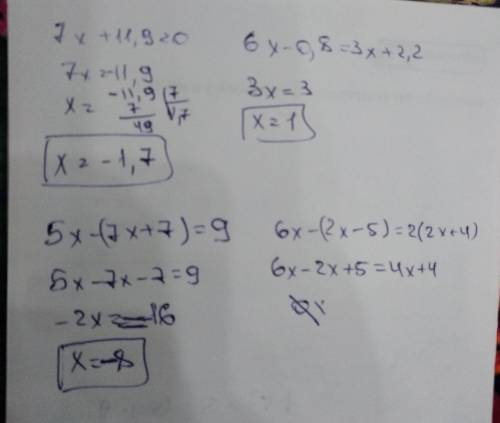 7x+11,9=0
7x=-11,9
x= -11,9 7
7 1,7
49
x=-1,7
6x-0,8=3x+2,2
3x=3
x=1
5x-(7x+7)=9
5x-7x-7=9
-2x=16
x=-8
6x-(2x-5)=2(2x+4)
6x-2x+5=4x+4